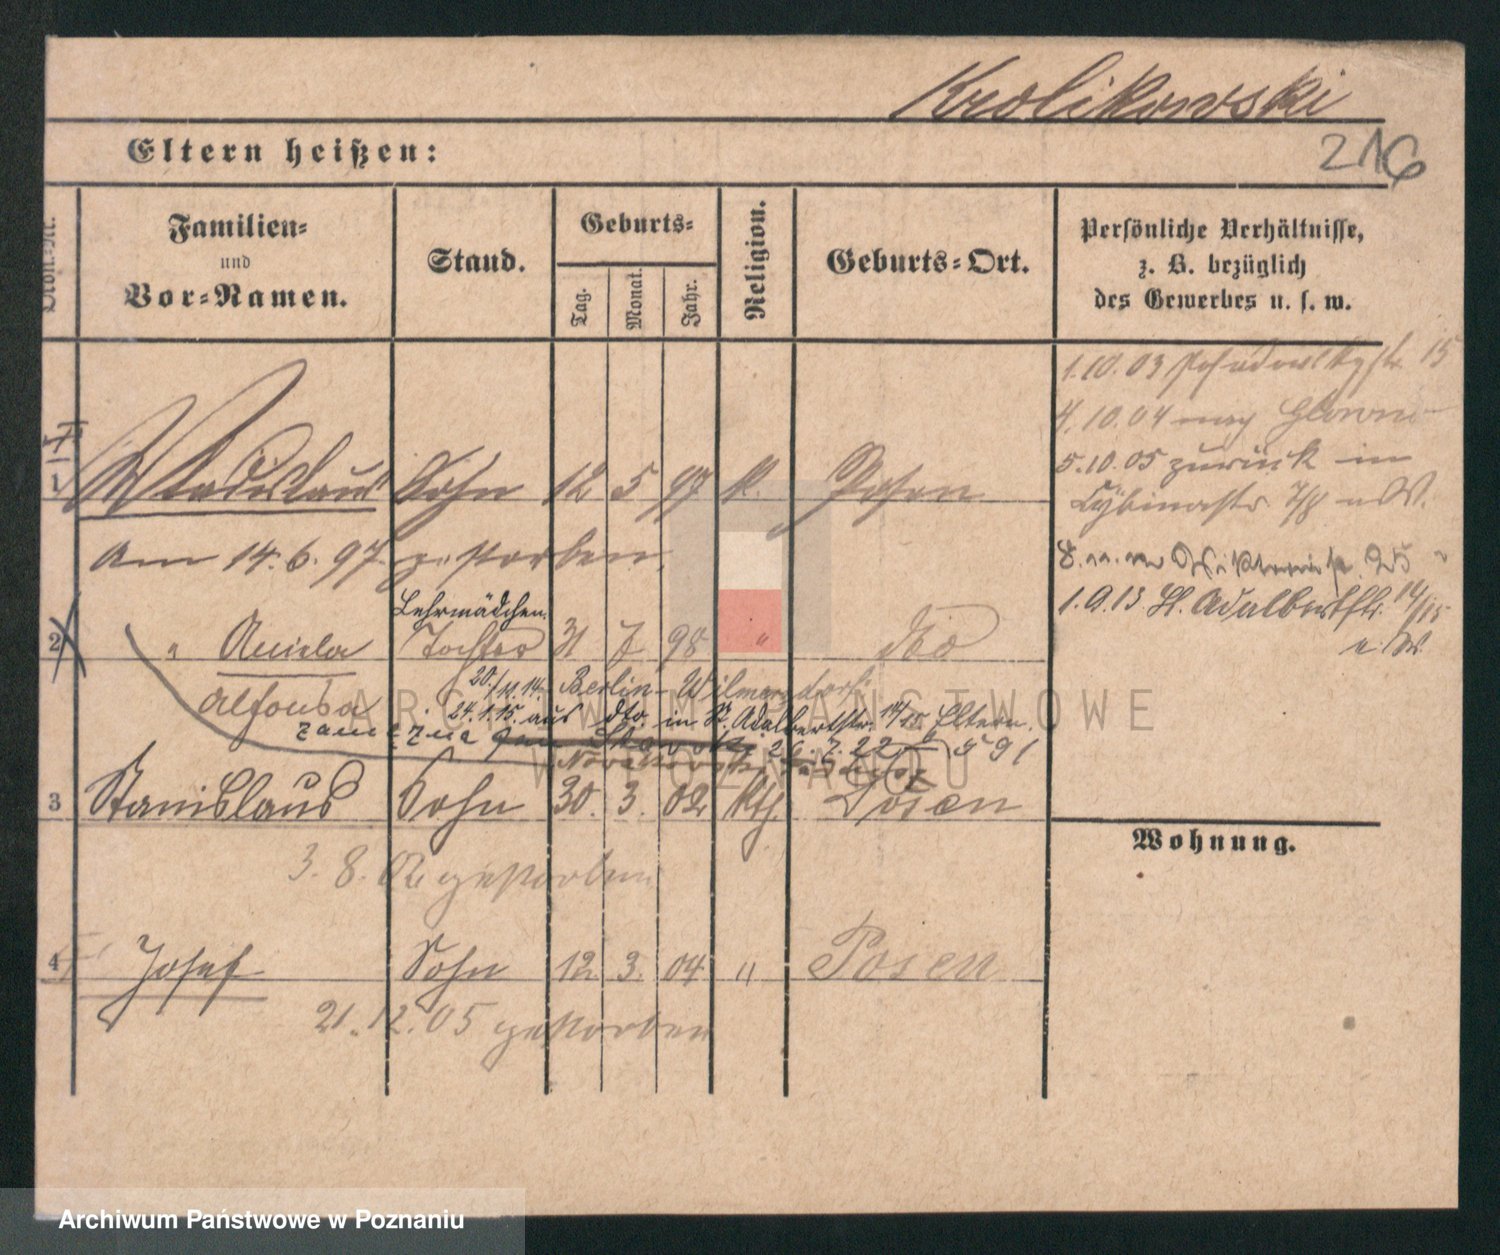 Krolikowski
216
Eltern heißen:
Ordn.-Nr.
Familien-
und
Vor-Namen.
Stand.
Geburts-
Tag.
Monat.
Jahr.
Religion.
Geburts-Ort.
Persönliche Verhältnisse,
z. B. bezüglich
des Gewerbes u. s. w.
1.10.03 15
4.10.04 Glowno
5.10.05 zurück in
Cybinastr. 7/8
1 Wladislaus Sohn 12 5 97 k. Posen
am 14.6.97 gestorben.
1.9.13 St. Adalbertstr. 14/15
Lehrmädchen
2 " Aniela Tochter 31 7 98 " dto
Alfonsa
20./11.14. Berlin-Wilmersdorf
24.1.15. aus dto. in St. Adalbertstr. 14/15 Eltern.
zamężna 26.7.22 591
3 Stanislaus Sohn 30. 3. 02 kth. Posen
3.8.02 gestorben
Wohnung.
4 Josef Sohn 12 3. 04 " Posen
21.12.05 gestorben
ARCHIWUM PAŃSTWOWE
W POZNANIU
Archiwum Państwowe w Poznaniu